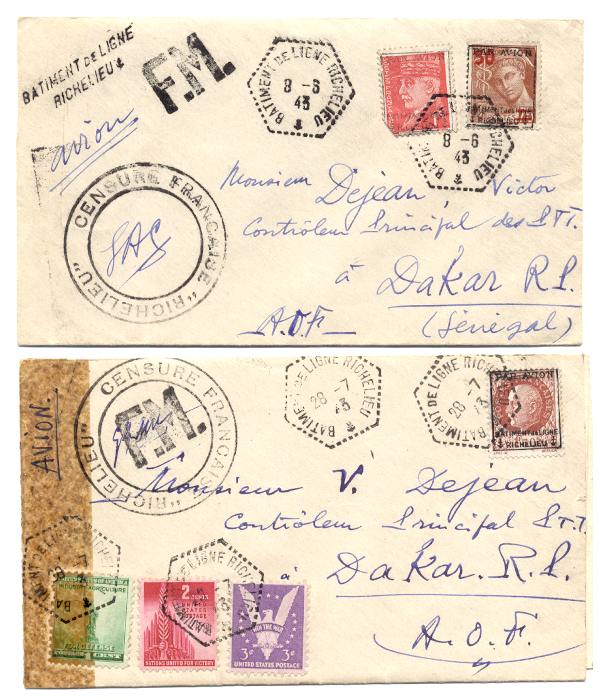 BATIMENT DE LIGNE
RICHELIEU
F.M.
BATIMENT DE LIGNE RICHELIEU
8 - 6
43
PAR AVION
50
RICHELIEU
BATIMENT DE LIGNE RICHELIEU
8 - 6
43
avion
CENSURE FRANCAISE
"RICHELIEU"
Monsieur Dejean Victor
Contrôleur Principal des P.T.T.
à Dakar R.P.
A.O.F. (Sénégal)
AVION.
CENSURE FRANCAISE
"RICHELIEU"
F.M.
BATIMENT DE LIGNE RICHELIEU
28 - 7
43
BATIMENT DE LIGNE RICHELIEU
28 - 7
43
PAR AVION
BATIMENT DE LIGNE
RICHELIEU
Monsieur V. Dejean
Contrôleur Principal P.T.T.
à Dakar. R.P.
A.O.F.
INDUSTRY AGRICULTURE
FOR DEFENSE
2 CENTS
UNITED
STATES
POSTAGE
NATIONS UNITED FOR VICTORY
WIN THE WAR
3¢ 3¢
UNITED STATES POSTAGE